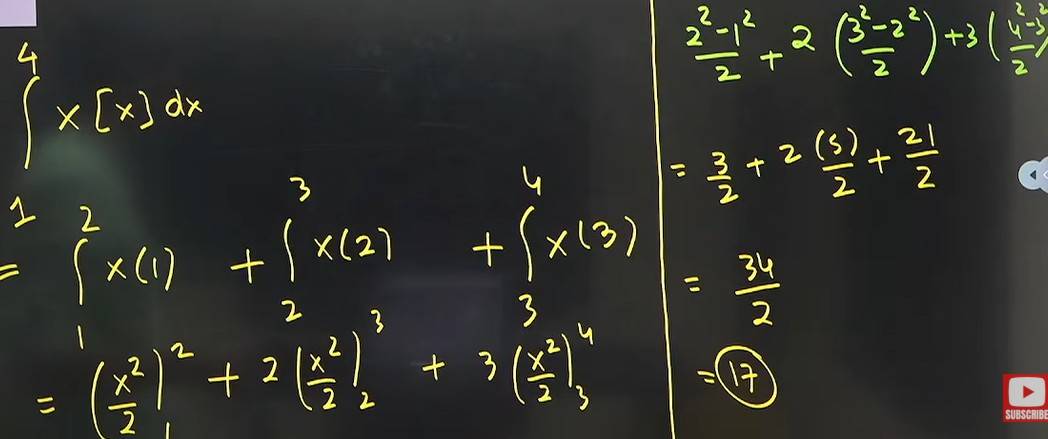 ∫₁⁴ x [x] dx
= ∫₁² x(1) + ∫₂³ x(2) + ∫₃⁴ x(3)
= (x²/2)₁² + 2 (x²/2)₂³ + 3 (x²/2)₃⁴
(2²-1²)/2 + 2 ((3²-2²)/2) + 3 ((4²-3²)/2)
= 3/2 + 2 (5)/2 + 21/2
= 34/2
= 17
SUBSCRIBE